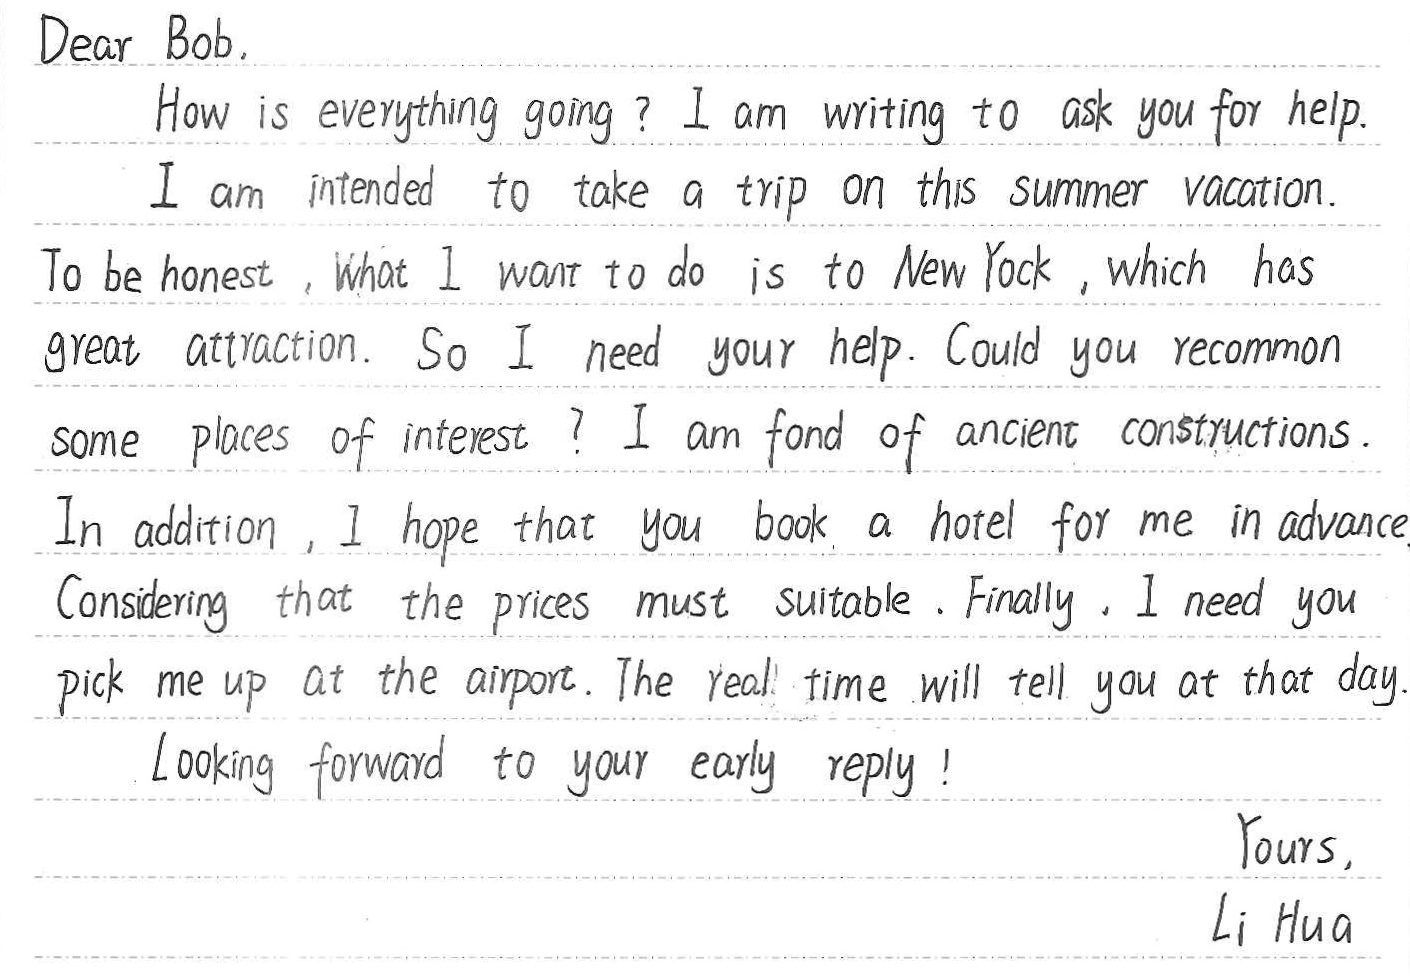 Dear Bob,
How is everything going? I am writing to ask you for help.
I am intended to take a trip on this summer vacation.
To be honest, What I want to do is to New Yock, which has
great attraction. So I need your help. Could you recommon
some places of interest? I am fond of ancient constructions.
In addition, I hope that you book a hotel for me in advance,
Considering that the prices must suitable. Finally, I need you
pick me up at the airport. The real time will tell you at that day.
Looking forward to your early reply!
Yours,
Li Hua